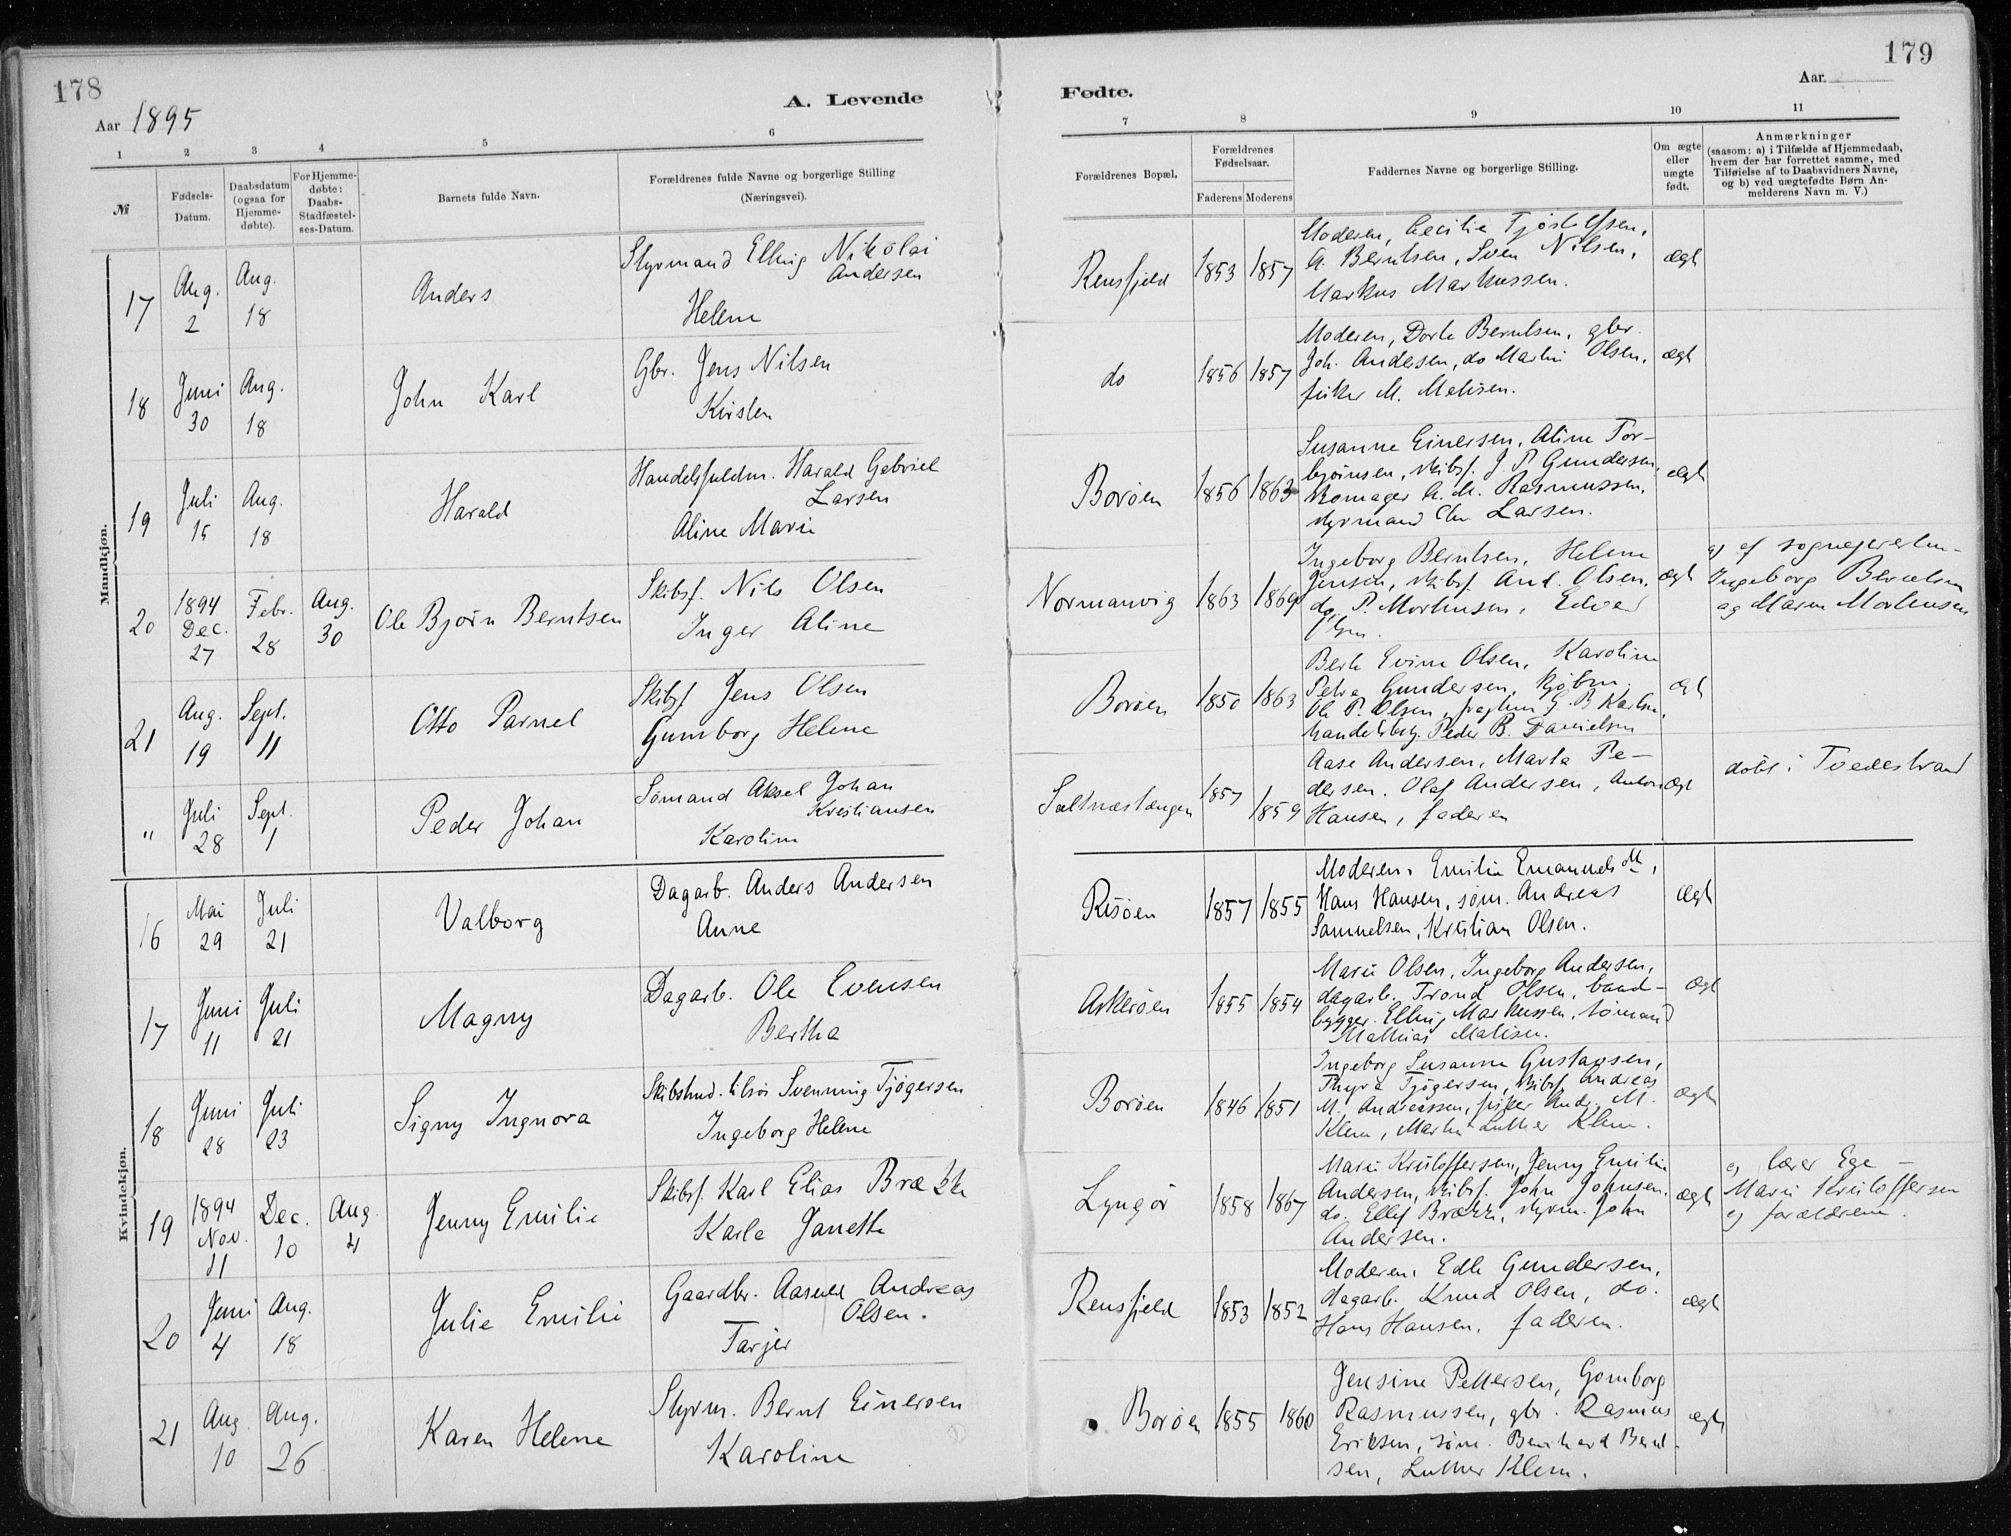 178
Aar 1895
A. Levende
1
2
3
4
5
6
№
Fødsels-
Datum.
Daabsdatum
(ogsaa for
Hjemme-
døbte).
For Hjemme-
døbte:
Daabs-
Stadfæstel-
ses-Datum.
Barnets fulde Navn.
Forældrenes fulde Navne og borgerlige Stilling
(Næringsvei).
Mandkjøn.
17
Aug.
2
Aug.
18
Anders
Styrmand Elling Nikolai
Andersen
Helene
18
Juni
30
Aug.
18
John Karl
Gbr. Jens Nilsen
Kirsten
19
Juli
15
Aug.
18
Harald
Handelsfuldm. Harald Gabriel
Larsen
Aline Marie
20
1894
Dec.
27
Febr.
28
Aug.
30
Ole Bjørn Berntsen
Skibsf. Nils Olsen
Inger Aline
21
Aug.
19
Sept.
11
Otto Parnel
Skibsf Jens Olsen
Gumborg Helene
"
Juli
28
Sept.
1
Peder Johan
Sømand Aksel Johan
Kristiansen
Karoline
Kvindekjøn.
16
Mai
29
Juli
21
Valborg
Dagarb. Anders Andersen
Anne
17
Juni
11
Juli
21
Magny
Dagarb. Ole Evensen
Bertha
18
Juni
28
Juli
23
Signy Ingnora
Svenning Tjøgersen
Ingeborg Helene
19
1894
Nov.
11
Dec.
10
Aug.
4
Jenny Emilie
Skibsf. Karl Elias Brække
Karle Janette
20
Juni
4
Aug.
18
Julie Emilie
Gaardbr. Aasuld Andreas
Olsen.
Tarjer
21
Aug
10
Aug.
26
Karen Helene
Styrm. Bernt Einersen
Karoline
179
Fødte.
Aar.
7
8
9
10
11
Forældrenes Bopæl.
Forældrenes
Fødselsaar.
Faderens
Moderens
Faddernes Navne og borgerlige Stilling.
Om ægte
eller
uægte
født.
Anmærkninger
(saasom: a) i Tilfælde af Hjemmedaab,
hvem der har forrettet samme, med
Tilføielse af to Daabsvidners Navne,
og b) ved uægtefødte Børn An-
melderens Navn m. V.)
Rensfjeld
1853
1857
Moderen, Cecilie Tjøstolfsen,
A. Berntsen, Sven Nilsen,
Markus Markussen.
ægt
do
1856
1857
Moderen, Dorte Berntsen, gbr.
Joh. Andersen, do Martin Olsen,
fisker M. Mathisen.
ægt
Borøen
1856
1863
Susanne Einersen, Aline Tor-
bjørnsen, skibsf. J. P. Gundersen,
skomager A. M. Rasmussen,
styrmand Chr Larsen.
ægt
Normanvig
1863
1869
Ingeborg Berntsen, Helene
Jensen, skibsf. And. Olsen,
do. P. Mortensen, Edvard
Olsen.
ægt
Ingeborg Berntsen
og Maren Mortensen
Borøen
1850
1863
Berte Evine Olsen, Karoline
Petra Gundersen, kjøbm.
Ole P. Olsen,
Peder B. Danielsen
ægt
Saltnæstangen
1857
1859
Aase Andersen, Marta Pe-
dersen. Olaf Andersen, Anton
Hansen, faderen
ægt
døbt i Tvedestrand
Risøen
1857
1855
Moderen, Emilie Emanuelsdtt,
Hans Hansen, søm. Andreas
Samuelsen, Kristian Olsen.
ægt
Askerøen
1855
1854
Marie Olsen, Ingeborg Andersen,
dagarb. Trond Olsen, baad-
bygger Elling Markussen, sømand
Mathias Matisen.
ægt
Borøen
1846
1851
Ingeborg Susanne Gustavsen,
Thyra Tjøgersen, skibsf. Andreas
M. Andreassen, fisker Andr. M.
Klem, Martin Luther Klem.
ægt
Lyngør
1858
1867
Marie Kristoffersen, Jenny Emilie
Andersen, skibsf. John Johnsen,
do. Ellef Brække, styrm. John
Andersen.
ægt
lærer Ege -
Marie Kristoffersen
og forældrene.
Rensfjeld
1853
1852
Moderen, Edle Gundersen,
dagarb. Knud Olsen, do.
Hans Hansen, faderen.
ægt
Borøen
1855
1860
Jensine Pettersen, Gomborg
Rasmussen, gbr. Rasmus
Eriksen, søm. Bernhard Bernt-
sen, Luther Klem.
ægt